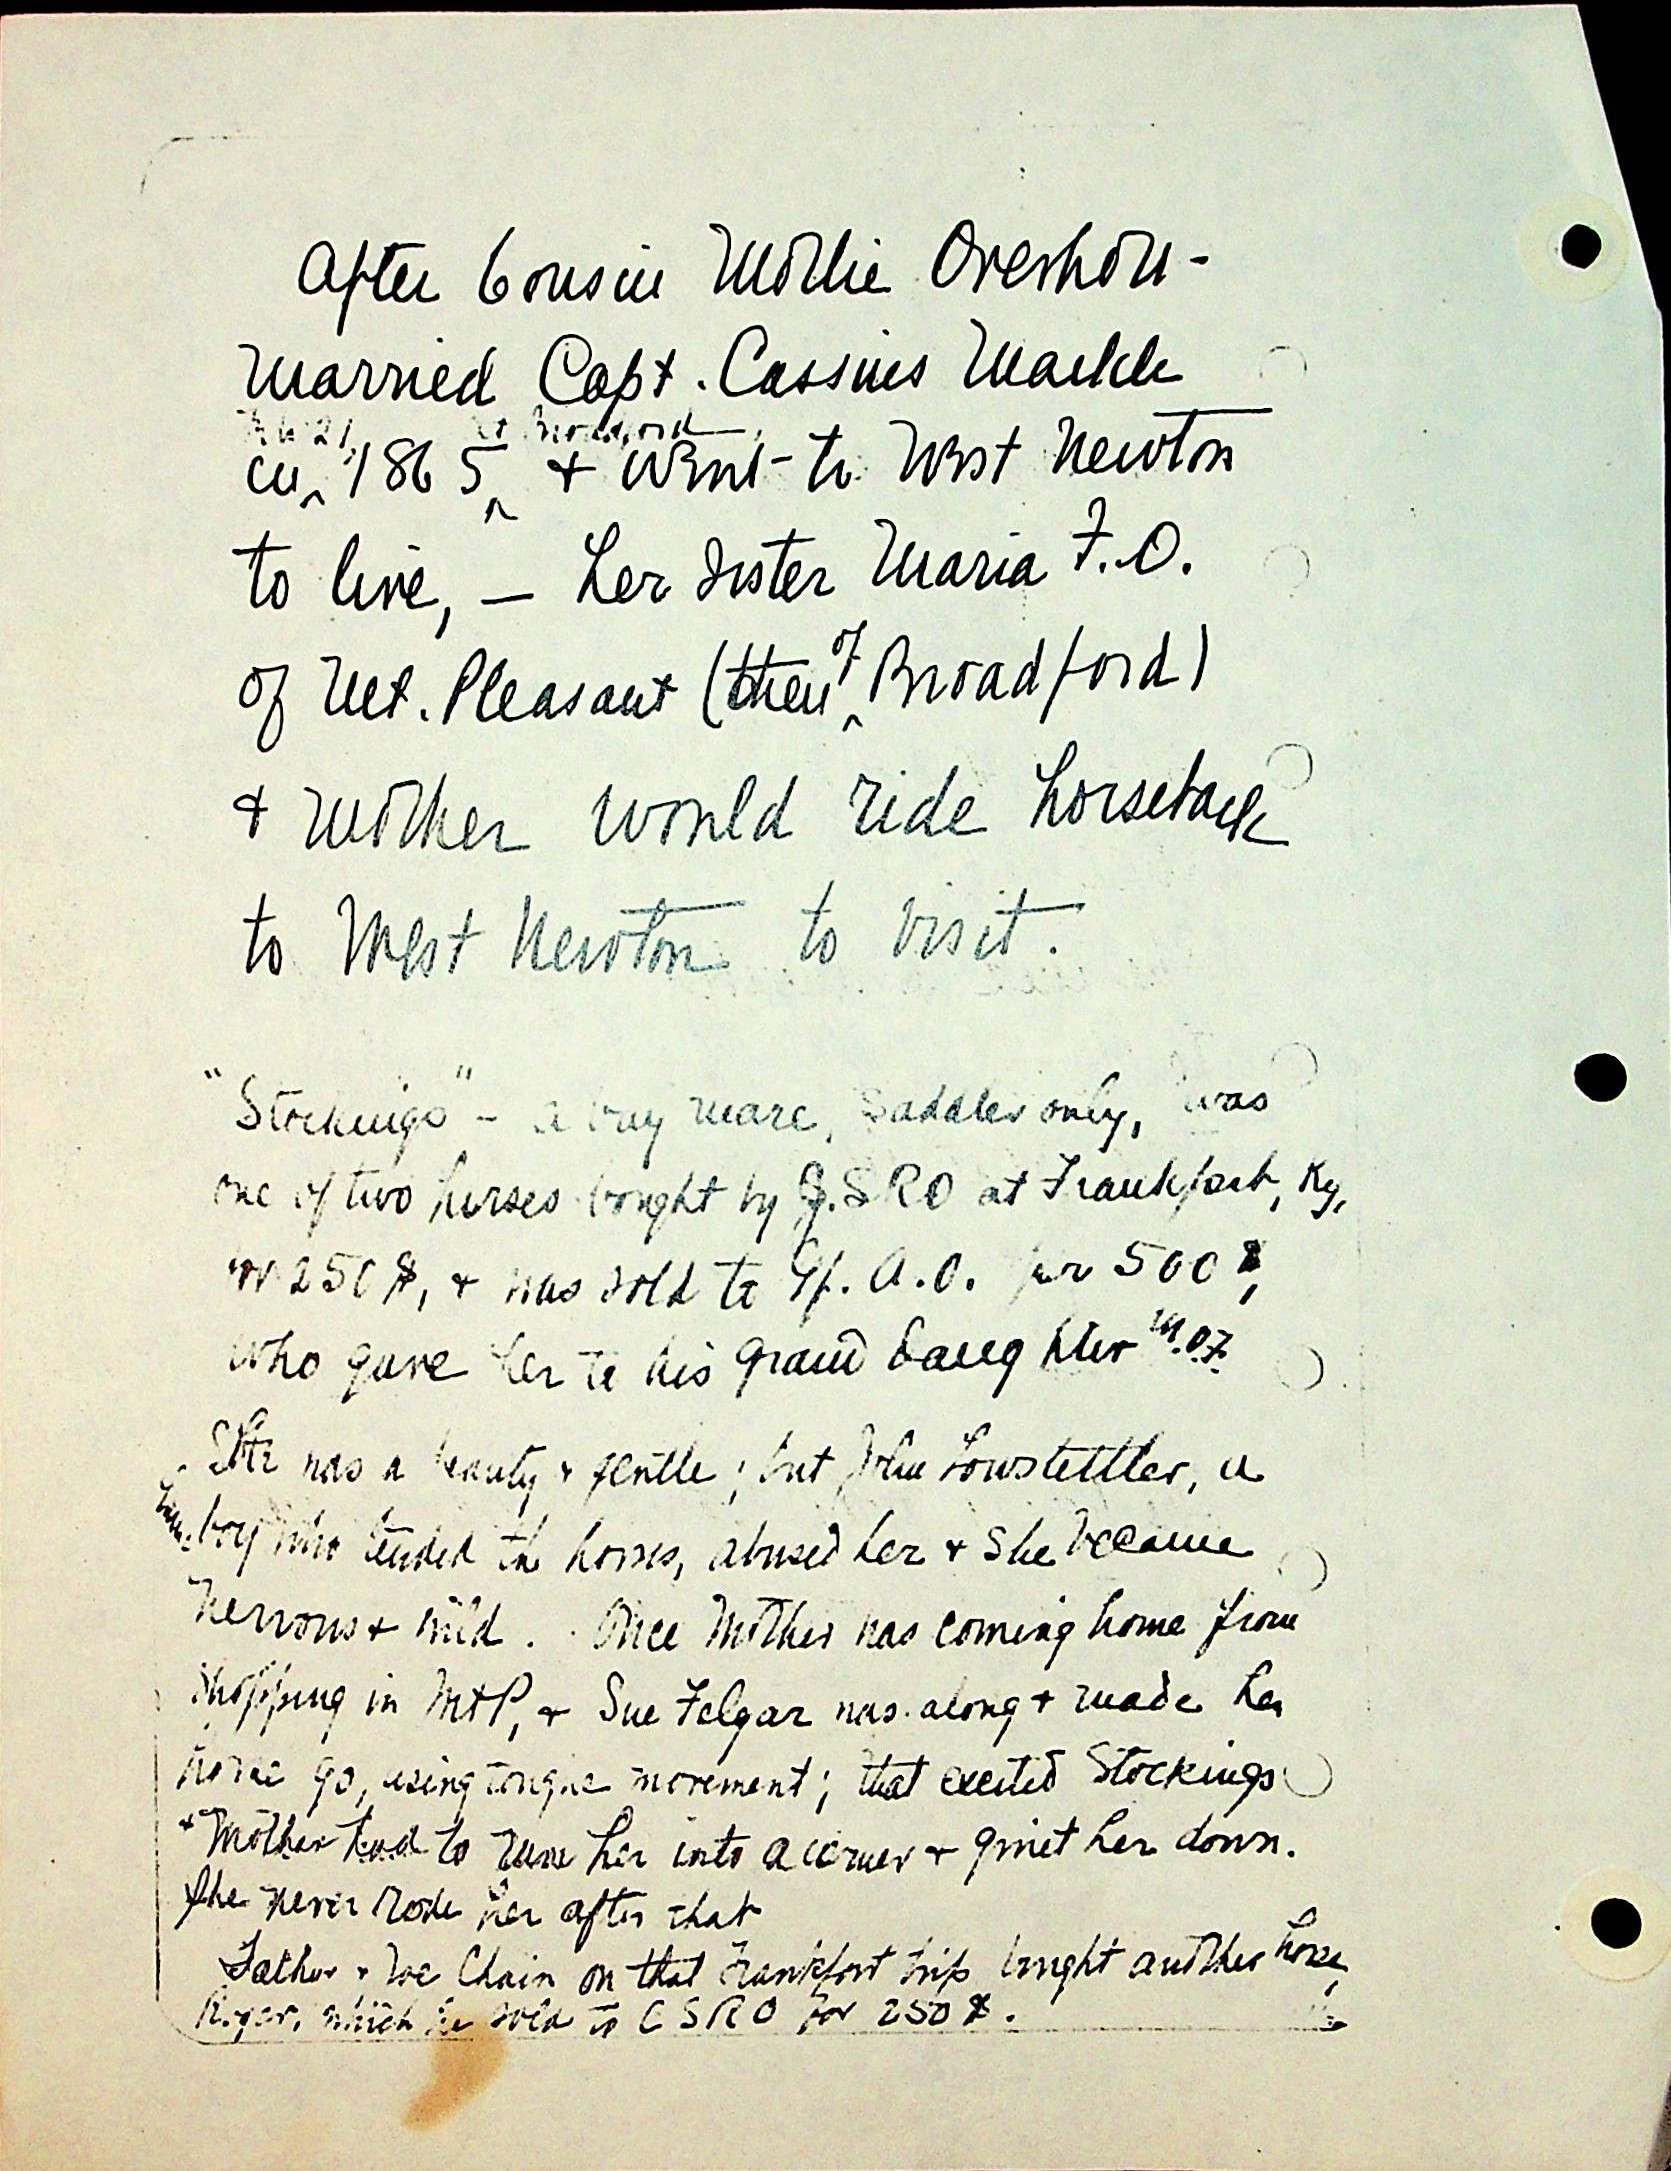 After Cousin Mollie Overholt
married Capt. Cassius Markle
21, at Broadford
in 1865 & went to West Newton
to live, — her sister Maria F.O.
of Mt. Pleasant (then of Broadford)
& Mother would ride horseback
to West Newton to visit.
"Stockings" - a bay mare, saddler only, was
one of two horses bought by J.SRO at Frankfort, Ky,
for 250$, & was sold to Gf. A.O. for 500$,
who gave her to his Grand Daughter M.O.F.
She was a beauty & gentle; but John Lowstettler, a
boy who tended the horses, abused her & she became
nervous & wild. Once Mother was coming home from
shopping in MtP, & Sue Felgar was along & made her
horse go, using tongue movement; that excited Stockings
& Mother had to run her into a corner & quiet her down.
She never rode her after that
Father & Chain on that Frankfort trip bought another horse,
which he sold to C SRO for 250$.